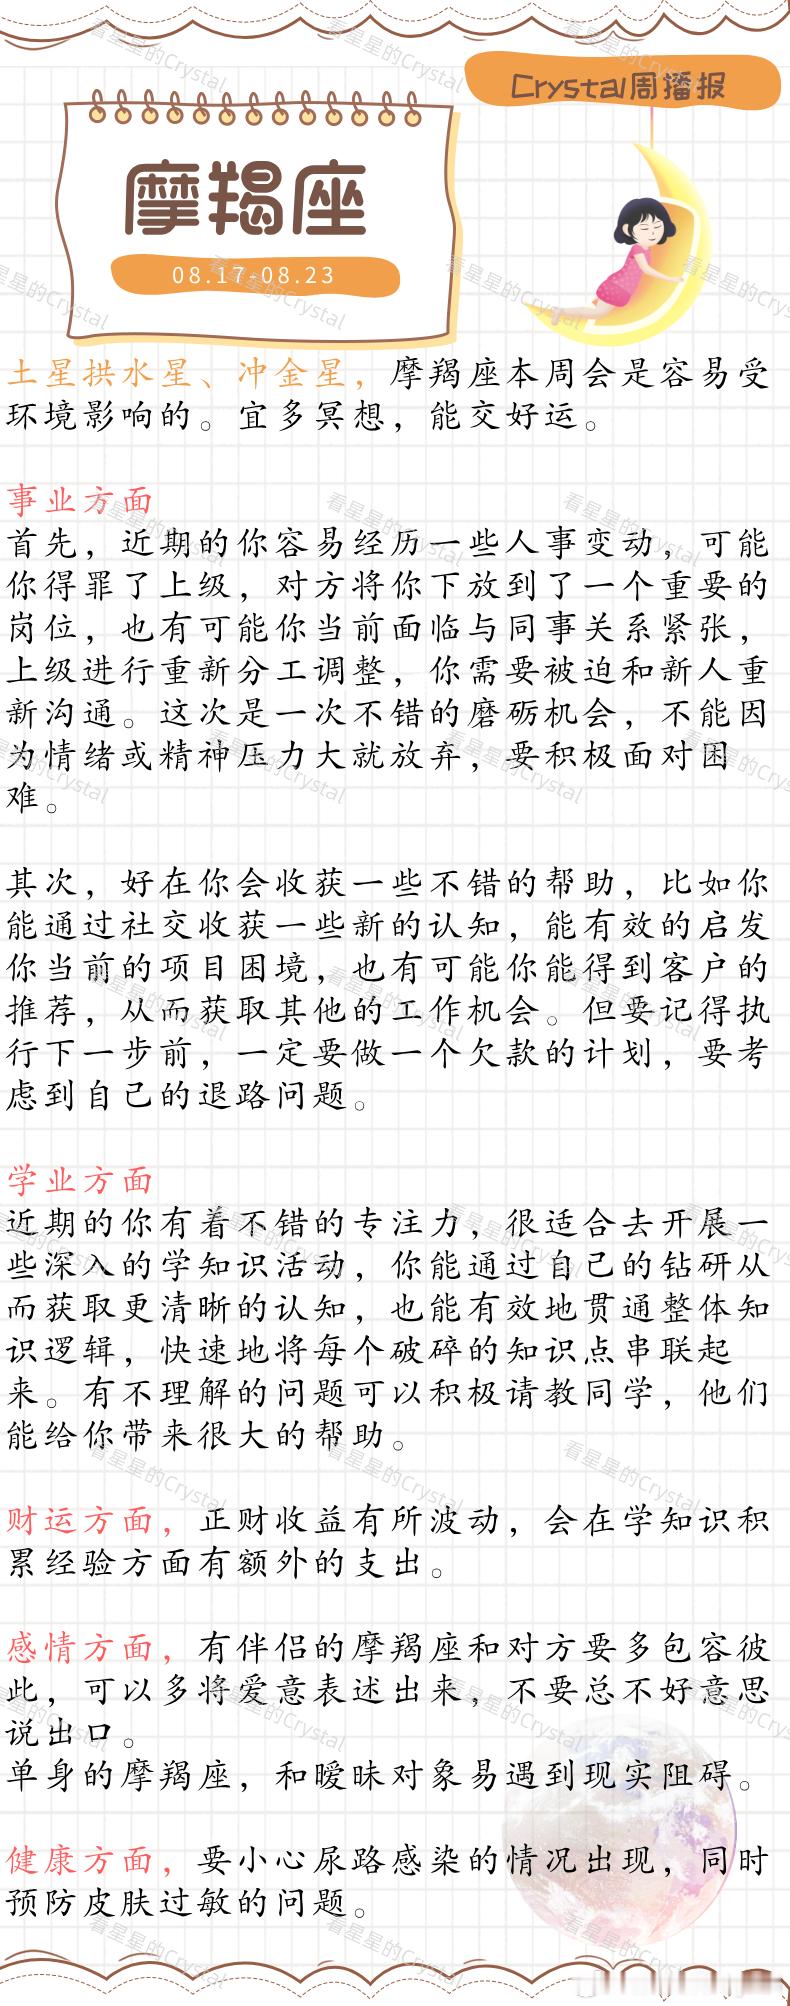 Crystal周播报
摩羯座
08.17-08.23
土星拱水星、冲金星，摩羯座本周会是容易受
环境影响的。宜多冥想，能交好运。
事业方面
首先，近期的你容易经历一些人事变动，可能
你得罪了上级，对方将你下放到了一个重要的
岗位，也有可能你当前面临与同事关系紧张，
上级进行重新分工调整，你需要被迫和新人重
新沟通。这次是一次不错的磨砺机会，不能因
为情绪或精神压力大就放弃，要积极面对困
难。
其次，好在你会收获一些不错的帮助，比如你
能通过社交收获一些新的认知，能有效的启发
你当前的项目困境，也有可能你能得到客户的
推荐，从而获取其他的工作机会。但要记得执
行下一步前，一定要做一个欠款的计划，要考
虑到自己的退路问题。
学业方面
近期的你有着不错的专注力，很适合去开展一
些深入的学知识活动，你能通过自己的钻研从
而获取更清晰的认知，也能有效地贯通整体知
识逻辑，快速地将每个破碎的知识点串联起
来。有不理解的问题可以积极请教同学，他们
能给你带来很大的帮助。
财运方面，正财收益有所波动，会在学知识积
累经验方面有额外的支出。
感情方面，有伴侣的摩羯座和对方要多包容彼
此，可以多将爱意表述出来，不要总不好意思
说出口。
单身的摩羯座，和暧昧对象易遇到现实阻碍。
健康方面，要小心尿路感染的情况出现，同时
预防皮肤过敏的问题。
看星星的Crystal